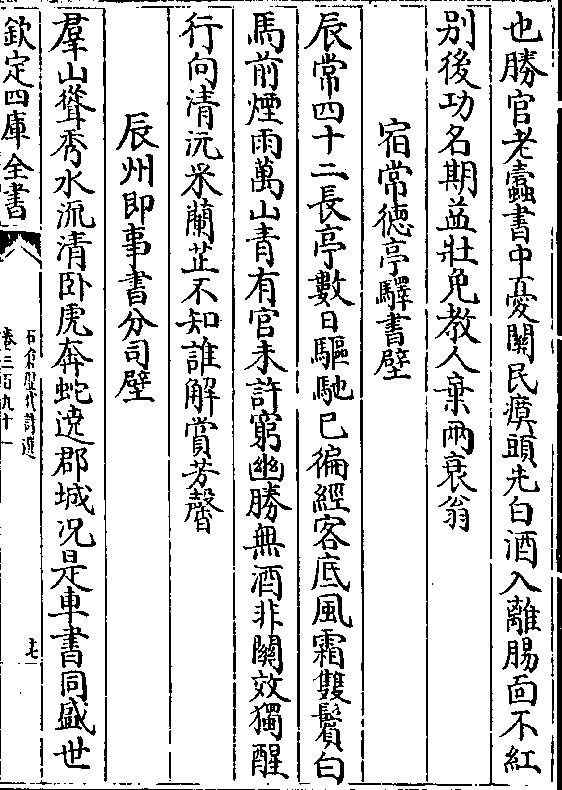 也勝官老蠧書中憂關民瘼頭先白酒入離腸面不紅
别後功名期益壯免教人棄兩衰翁
宿常德亭驛書壁
辰常四十二長亭數日驅馳已徧經客底風霜雙鬢白
馬前煙雨萬山青有官未許窮幽勝無酒非關效獨醒
行向清沅采蘭芷不知誰解賞芳馨
辰州即事書分司壁
羣山聳秀水流清卧虎奔蛇遶郡城况是車書同盛世
欽定四庫全書
石倉歷代詩選
卷三百九十一
十七